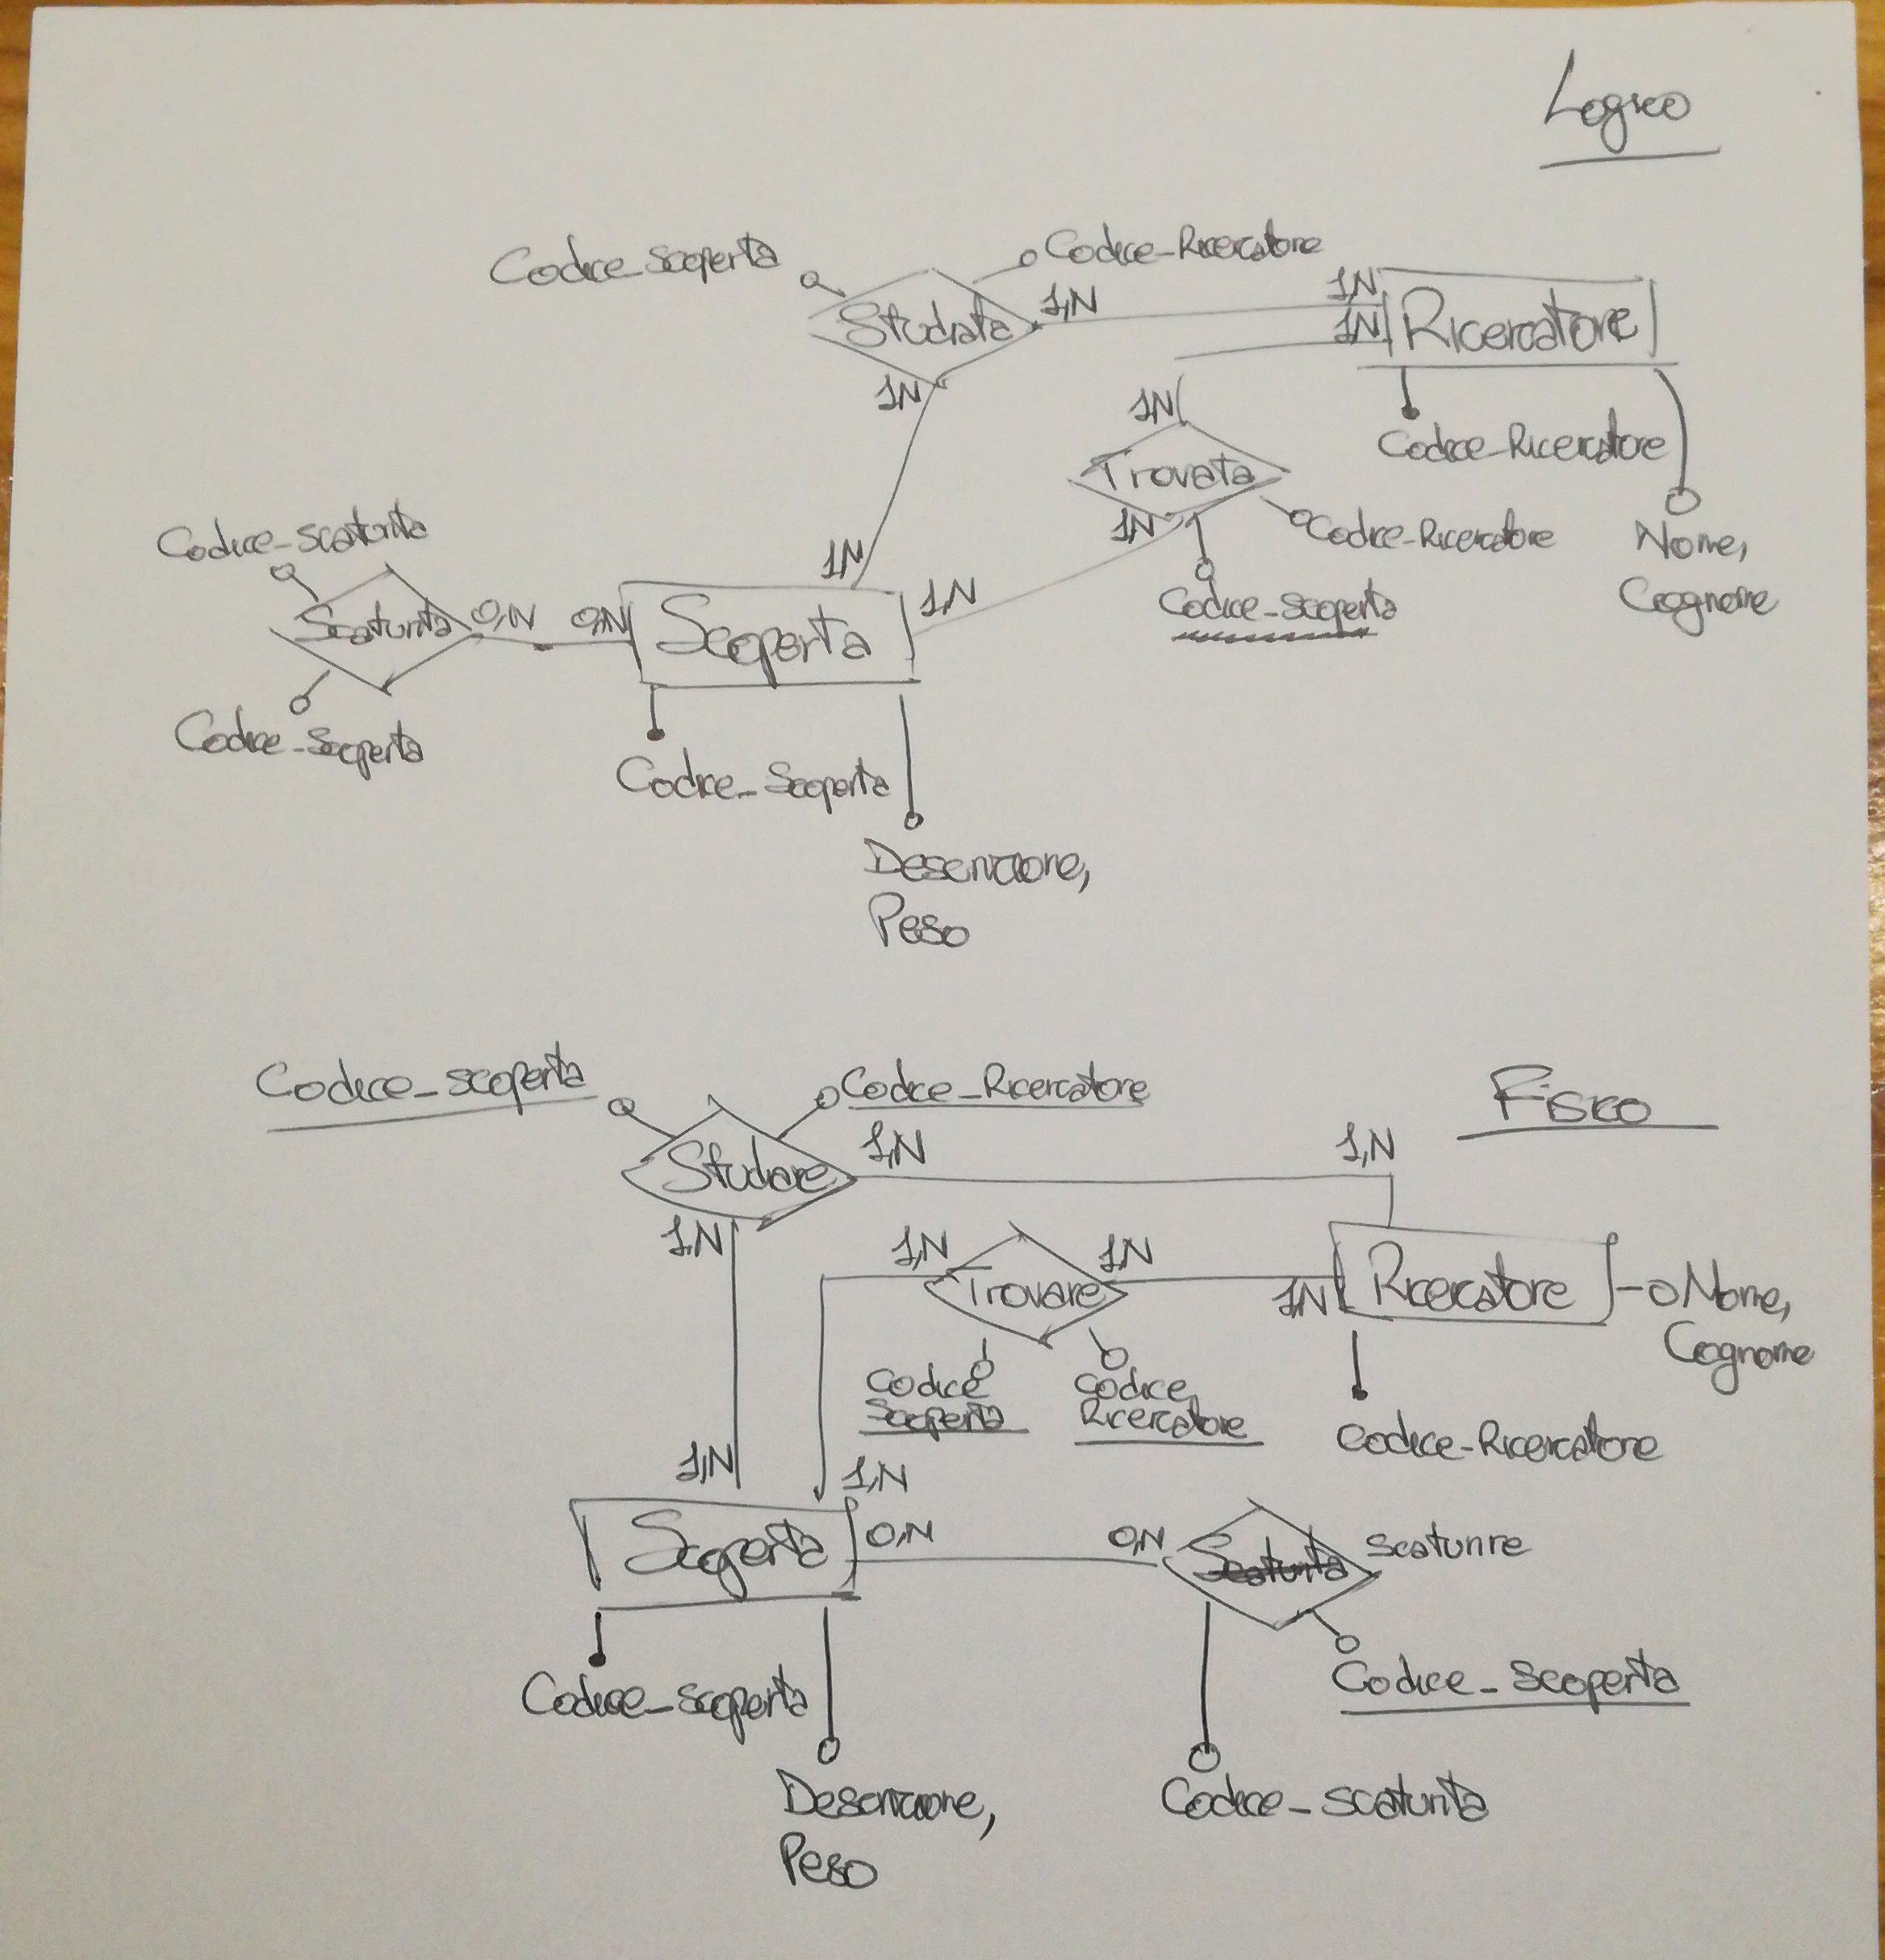 Logico
Codice_scoperta
Codice_Ricercatore
Studiata
1,N
1,N
1,N
Ricercatore
1,N
1,N
Trovata
Codice_Ricercatore
1,N
Codice_Ricercatore
Nome,
Cognome
Codice_scaturita
1,N
1,N
Codice_scoperta
Scaturita
0,N
0,N
Scoperta
Codice_Scoperta
Codice_Scoperta
Descrizione,
Peso
Codice_scoperta
Codice_Ricercatore
Fisico
Studiare
1,N
1,N
1,N
1,N
1,N
Trovare
1,N
Ricercatore
Nome,
Cognome
Codice
Scoperta
Codice
Ricercatore
Codice_Ricercatore
1,N
1,N
Scoperta
0,N
0,N
Scaturita
scaturire
Codice_scoperta
Codice_scoperta
Descrizione,
Peso
Codice_scaturita